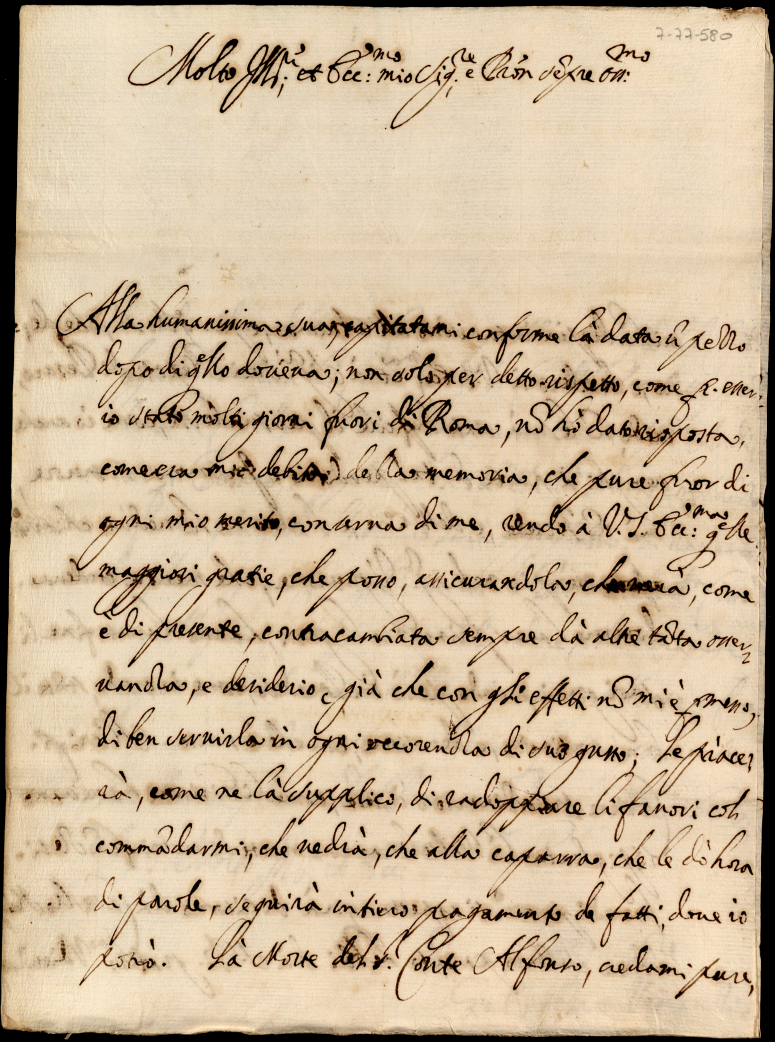 7-77-580
Molto Ill.re et Ecc:mo mio Sig.re e Pron sepre oss:mo
Alla humanissima sua, capitatami conforme la data ũ pezzo
dopo di q.llo doueua; non solo per detto rispetto, come p. esser-
io stato molti giorni fuori di Roma, nõ hò dato risposta,
come era mio debito; della memoria, che pure fuor di
ogni mio merito, conserua di me, rendo à V.S. Ecc:ma q.lle
maggiori gratie, che posso, assicurandola, che, come
è di presente, contracambiata sempre dà altretãta osser-
uanza, e desiderio, già che con gli effetti nõ mi è pmesso,
di ben seruirla in ogni occorenza di suo gusto; Le piace-
rà, come ne la supplico, di radoppiare li fauori col
commãdarmi, che uedrà, che alla caparra, che le dò hora
di parole, seguirà intiero pagamento de fatti, doue io
potrò. La Morte del S.r Conte Alfonso, credami pure,